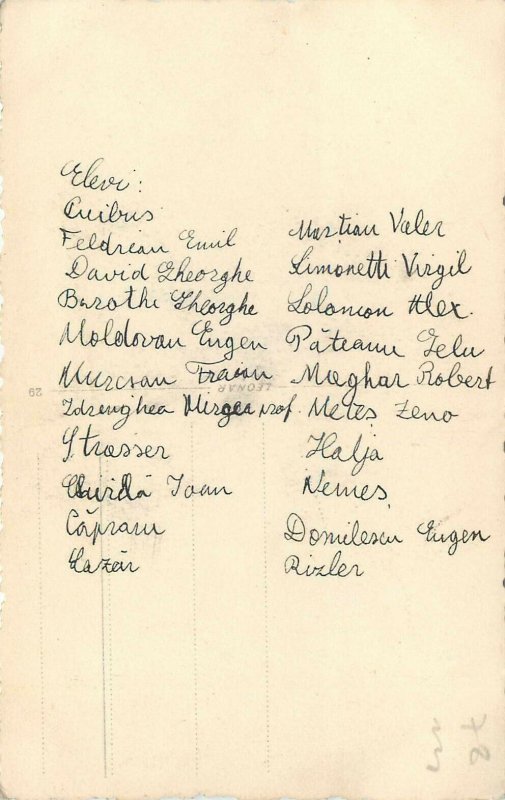 Elevi:
Cuibus
Feldrean Emil
David Gheorghe
Barothi Gheorghe
Moldovan Eugen
Muresan Traian
Zdrenghea Mircea prof.
Strasser
Ioan
Căpranu
Lazăr
Martian Valer
Simonetti Virgil
Solomon Alex.
Păteanu Gelu
Moghar Robert
Metes Zeno
Halja
Nemes
Domilescu Eugen
Rizler
LEONAR
29
78